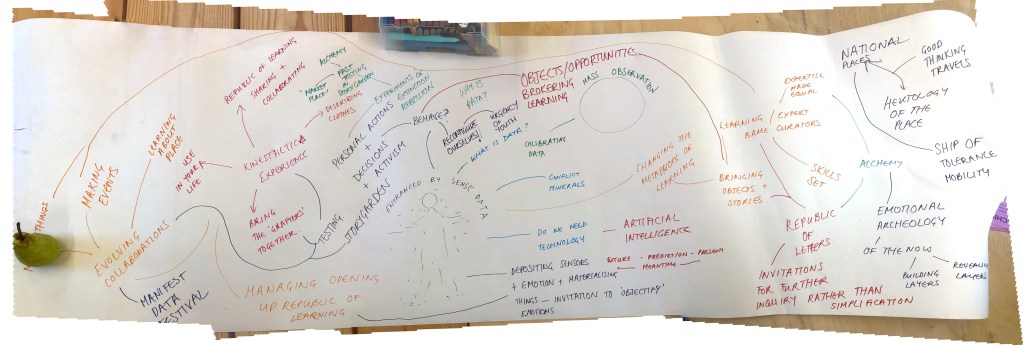 THINGS
MAKING
EVENTS
LEARNING
ABOUT
PLACE
EVOLVING
COLLABORATIONS
MANIFEST
DATA
FESTIVAL
USE
IN YOUR
LIFE
REPUBLIC OF LEARNING
SHARING +
COLLABORATING
KINESTHETIC
EXPERIENCE
BRING
THE 'GRAFTERS'
TOGETHER
MANAGING OPENING
UP REPUBLIC OF
LEARNING
ALCHEMY
MARKET
PLACE
PAST
TESTING
IN
STORYGARDEN
DESCRIBING
CLOTHES
EXPERIMENTS OF
EXTINCTION
REBELLION
PERSONAL ACTIONS
DECISIONS
+ ACTIVISM
TESTING
STORYGARDEN
BEHAVE?
WHY IS
DATA?
RECONFIGURE
OURSELVES
URGENCY
OF
YOUTH
WHAT IS DATA?
ENTRANCED BY SENSE DATA
OBJECTS/OPPORTUNITIES
BROKERING
LEARNING
MASS OBSERVATION
CALIBRATING
DATA
CONFLICT
MINERALS
DO WE NEED
TECHNOLOGY
ARTIFICIAL
INTELLIGENCE
DEPOSITING SENSORS
+ EMOTION + MATERIALISING
THINGS - INVITATION TO 'OBJECTIFY'
EMOTIONS
FUTURE - PREDICTION - PRESENT
MEANTIME
CHANGING THE
METAPHORS OF
LEARNING
EXPERTISE
MADE
EQUAL
LEARNING
GAME
EXPERT
CURATORS
BRINGING
OBJECTS +
STORIES
SKILLS
SET
REPUBLIC
OF
LETTERS
INVITATIONS
FOR FURTHER
INQUIRY RATHER THAN
SIMPLIFICATION
ALCHEMY
EMOTIONAL
ARCHEOLOGY
OF THE NOW
BUILDING
LAYERS
LAYERS
NATIONAL
PLACES
GOOD
THINKING
TRAVELS
OF THE
PLACE
SHIP OF
TOLERANCE
MOBILITY